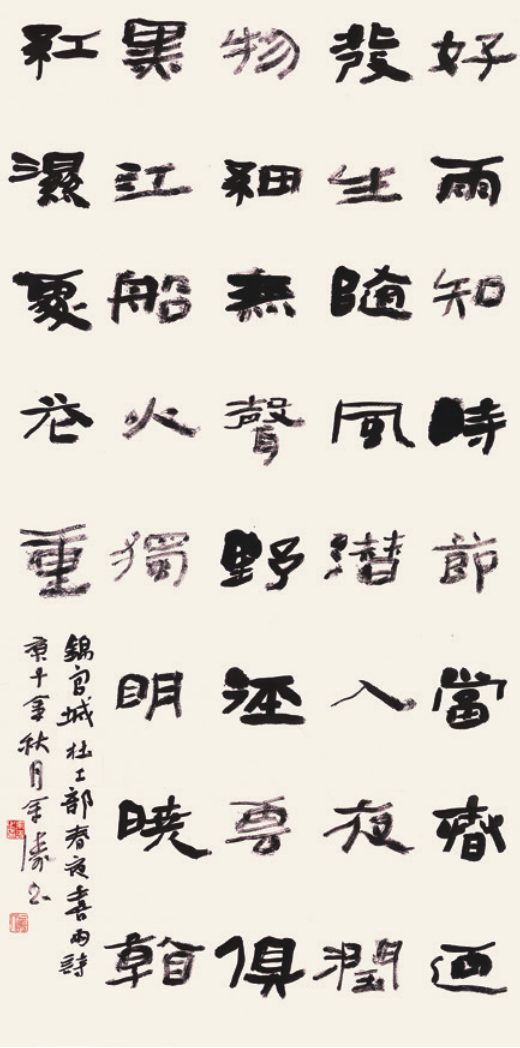 好雨知時節當春迺
發生隨風潛入夜潤
物細無聲野徑雲俱
黑江船火獨明曉看
紅濕處花重
錦官城 杜工部春夜喜雨詩
庚午年秋月